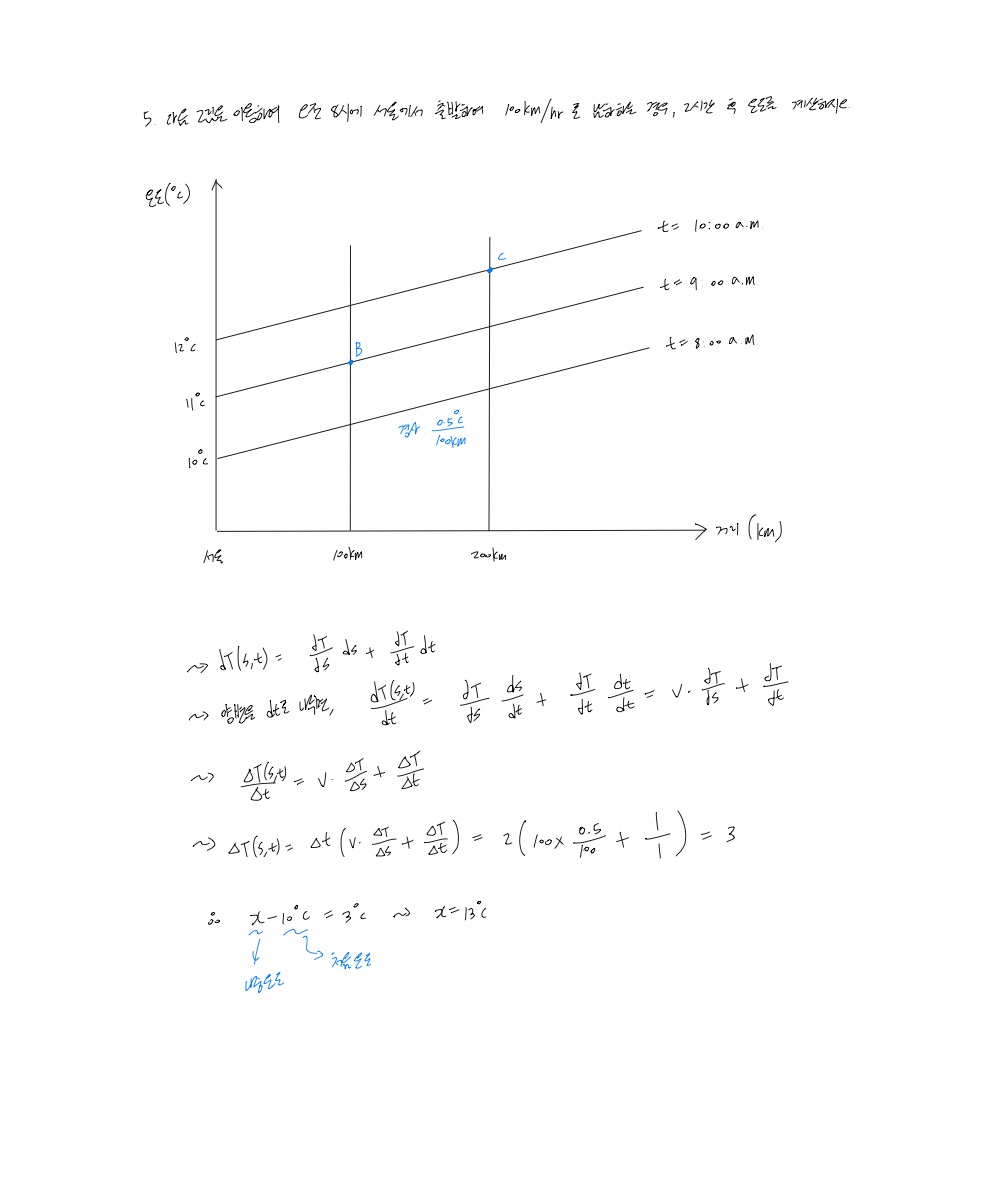 5. 다음 그림을 이용하여 오전 8시에 서울에서 출발하여 100km/hr 로 남하하는 경우, 2시간 후 온도를 계산하시오
온도(°C)
t = 10:00 a.m.
C
t = 9:00 a.m.
12°C
B
t = 8:00 a.m.
11°C
경사 0.5°C/100km
10°C
거리 (km)
서울 100km 200km
~> dT(s,t) = dT/ds ds + dT/dt dt
~> 양변을 dt로 나누면, dT(s,t)/dt = dT/ds ds/dt + dT/dt dt/dt = v · dT/ds + dT/dt
~> ΔT(s,t)/Δt = v · ΔT/Δs + ΔT/Δt
~> ΔT(s,t) = Δt (v · ΔT/Δs + ΔT/Δt) = 2(100 × 0.5/100 + 1/1) = 3
∴ x-10°C = 3°C ~> x = 13°C
처음온도
나중온도